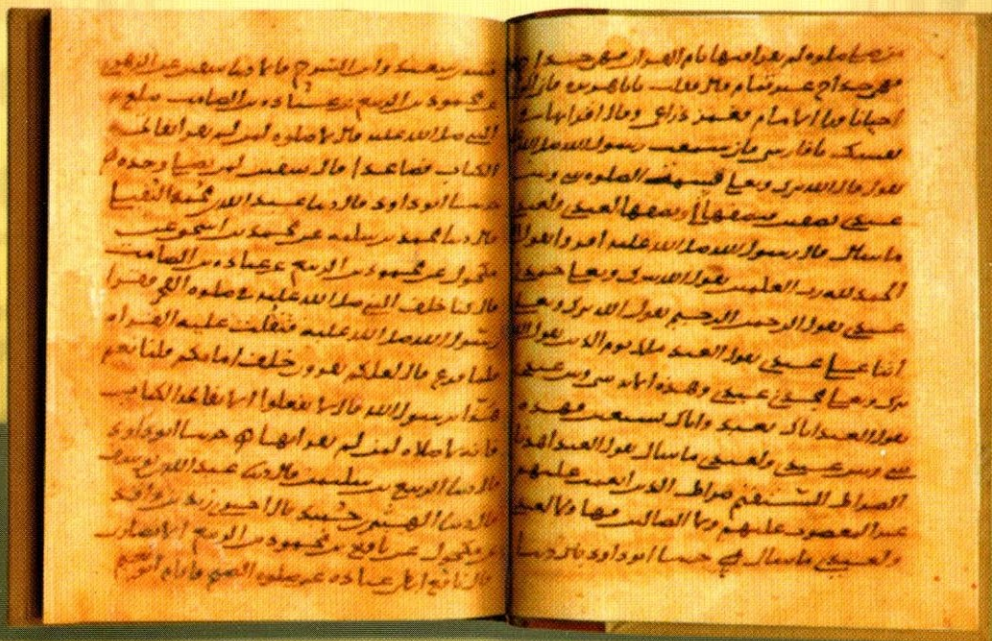 من صلى صلوه لم يقرا فيها بام القران فهي خداج
فهي خداج غير تمام قال فقلت يابا هريره فاني اكون
احيانا ورا الامام فغمز ذراعي وقال اقرا بها في
نفسك يا فارسي فاني سمعت رسول الله صلى الله
يقول قال الله تبرك وتعلى قسمت الصلوه بيني وبين
عبدي نصفين فنصفها لي ونصفها لعبدي ولعبدي
ما سال قال رسول الله صلى الله عليه اقروا يقول
الحمد لله رب العلمين يقول الله تبرك وتعلى حمدني
عبدي يقول الرحمن الرحيم يقول الله تبرك وتعلى
اثنا علي عبدي يقول العبد ملك يوم الدين يقول الله
تبرك وتعلى مجدني عبدي وهذه الايه بيني وبين عبدي
يقول العبد اياك نعبد واياك نستعين فهذه
بيني وبين عبدي ولعبدي ما سال يقول العبد اهدنا
الصراط المستقيم صراط الذين انعمت عليهم
غير المغضوب عليهم ولا الضالين فهاولا لعبدي
ولعبدي ما سال حدثنا ابو داود قال دثنا
قتيبه بن سعيد وابن السرح قالا دثنا سفين عن الزهري
عن محمود بن الربيع عن عباده بن الصامت يبلغ به
النبي صلى الله عليه قال لا صلوه لمن لم يقرا بفاتحه
الكتاب فصاعدا قال سفين لمن يصلي وحده
حدثنا ابو داود قال دثنا عبد الله بن محمد النفيلي
قال دثنا محمد بن سلمه عن محمد بن اسحق عن
مكحول عن محمود بن الربيع عن عباده بن الصامت
قال كنا خلف النبي صلى الله عليه في صلوه الفجر فقرا
رسول الله صلى الله عليه فثقلت عليه القراه
فلما فرغ قال لعلكم تقرون خلف امامكم قلنا نعم
هذا يرسول الله قال لا تفعلوا الا بفاتحه الكتاب
فانه لا صلاه لمن لم يقرا بها حدثنا ابو داود
قال دثنا الربيع بن سليمن قال دثنا عبد الله بن يوسف
قال دثنا الهيثم بن حميد قال اخبرني زيد بن واقد
عن مكحول عن نافع بن محمود بن الربيع الانصاري
قال نافع ابطا عباده عن صلوه الصبح فاقام ابو نعيم